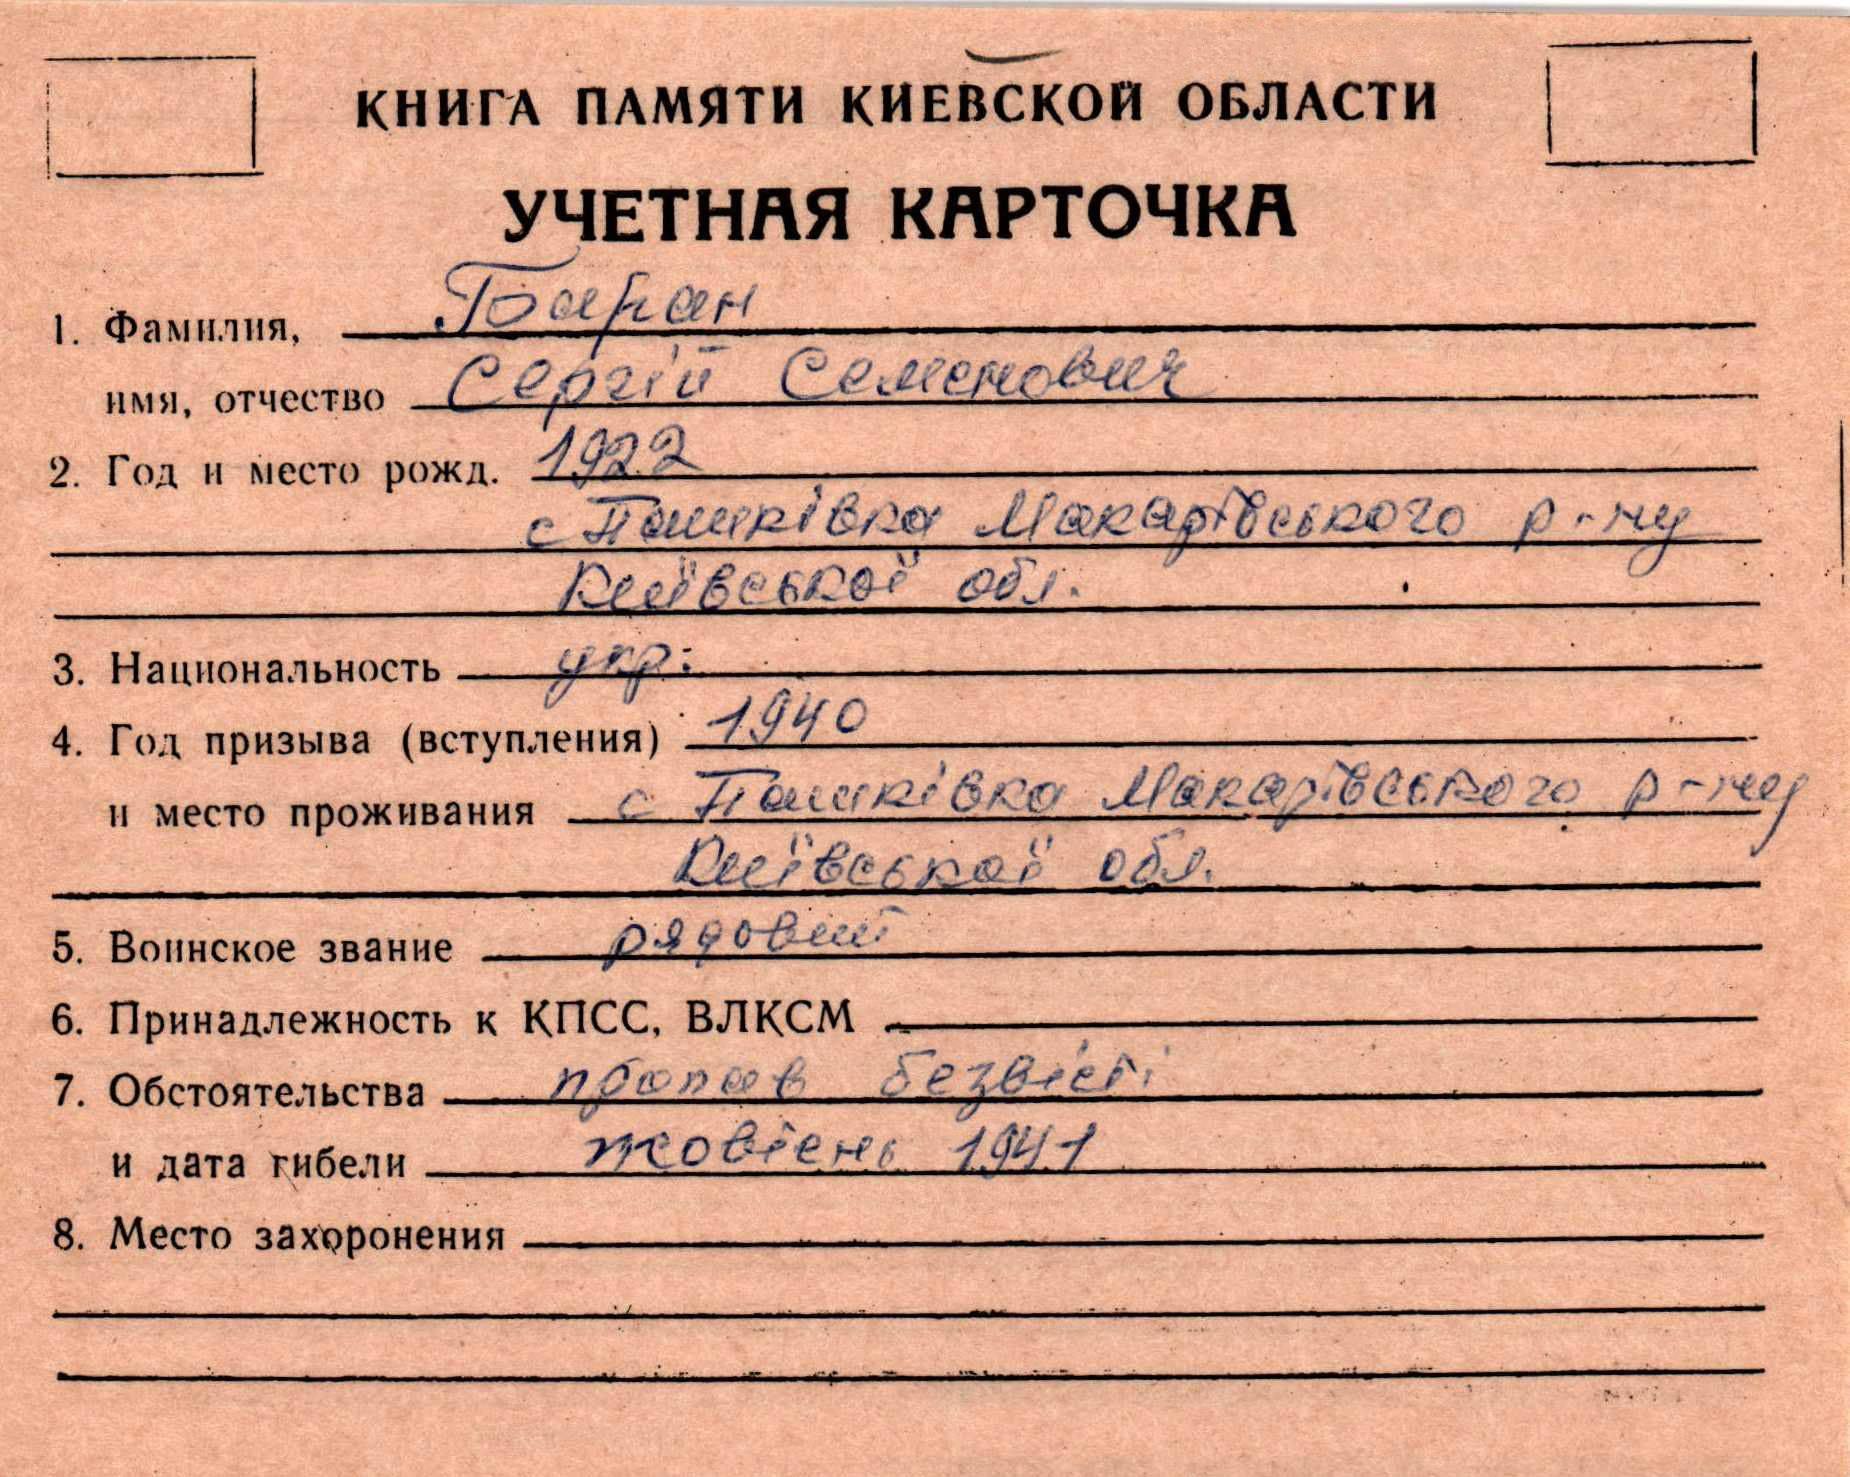 КНИГА ПАМЯТИ КИЕВСКОЙ ОБЛАСТИ
УЧЕТНАЯ КАРТОЧКА
1. Фамилия, Баран
имя, отчество Сергій Семенович
2. Год и место рожд. 1922
с Пашківка Макарівського р-ну
Київської обл.
3. Национальность укр.
4. Год призыва (вступления) 1940
и место проживания с Пашківка Макарівського р-ну
Київської обл.
5. Воинское звание рядовий
6. Принадлежность к КПСС, ВЛКСМ
7. Обстоятельства пропав безвісті
и дата гибели жовтень 1941
8. Место захоронения